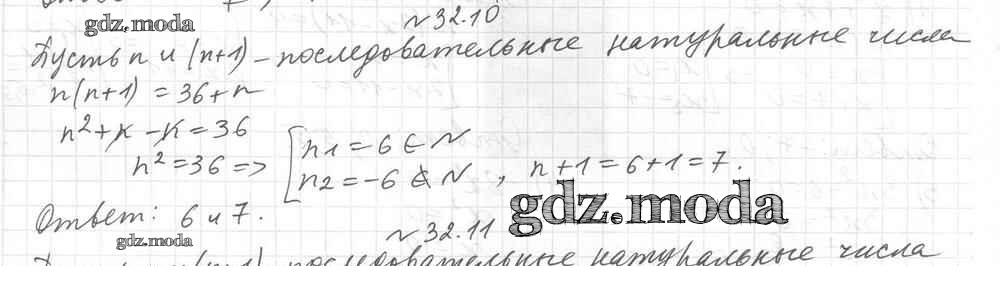 №32.10
gdz.moda
Пусть n и (n+1) – последовательные натуральные числа
n(n+1) = 36+n
n²+n–n=36
n²=36 => [n1=6 ∈ N
n2=-6 ∉ N, n+1=6+1=7.
Ответ: 6 и 7.
gdz.moda
№32.11
gdz.moda
последовательные натуральные числа